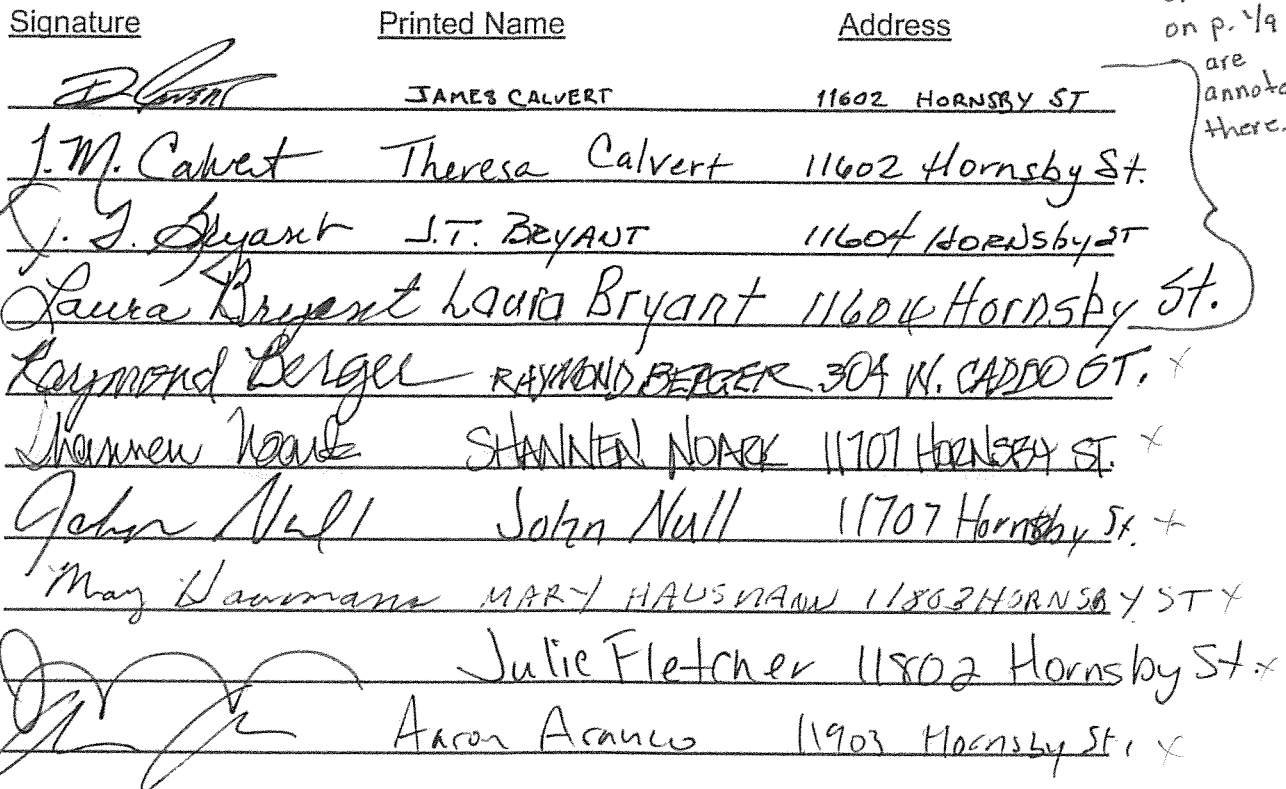 Signature Printed Name Address
on p. 1/9
are
there.
JAMES CALVERT 11602 HORNSBY ST
J.M. Calvert Theresa Calvert 11602 Hornsby St.
J. T. Bryant J.T. BRYANT 11604 HORNSBY ST
Laura Bryant Laura Bryant 11604 Hornsby St.
Raymond Berger RAYMOND BERGER 304 W. CADDO ST. x
Shannen Noack SHANNEN NOACK 11707 HORNSBY ST. x
John Null John Null 11707 Hornsby St. x
Mary Hausmann MARY HAUSMANN 11803 HORNSBY ST x
Julie Fletcher 11802 Hornsby St. x
Aaron 11903 Hornsby St. x